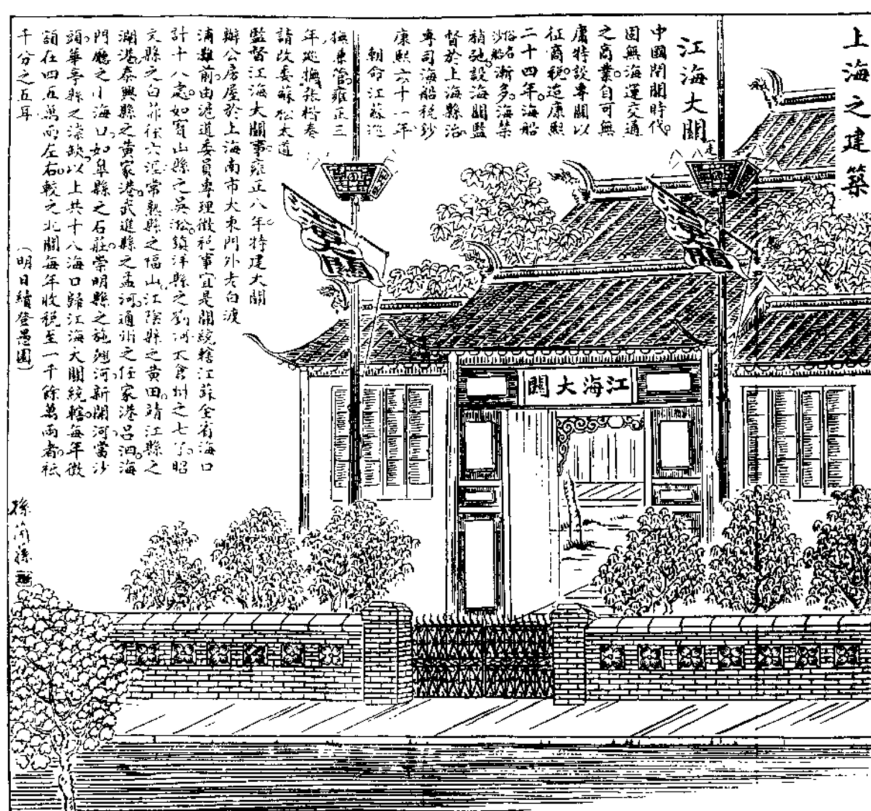 上海之建築
江海大關
中國閉關時代
固無海運交通
之商業自可無
庸特設專關以
征商稅迨康熙
二十四年海船
俗名沙船漸多海禁
稍弛設海關監
督於上海縣治
專司海船稅鈔
康熙六十一年
朝命江蘇巡
撫兼管雍正三
年巡撫張楷奏
請改委蘇松太道
監督江海大關事雍正八年特建大關
辦公房屋於上海南市大東門外老白渡
浦灘前由滬道委員專理徵稅事宜是關統轄江蘇全省海口
計十八處如寶山縣之吳淞鎮洋縣之劉河太倉州之七丫昭
文縣之白茆徐六涇常熟縣之福山江陰縣之黃田靖江縣之
瀾港泰興縣之黃家港武進縣之孟河通州之任家港呂泗海
門廳之小海口如皋縣之石莊崇明縣之施翹河新開河當沙
頭華亭縣之漴缺以上共十八海口歸江海大關統轄每年徵
額在四五萬兩左右較之北關每年收稅至一千餘萬兩者祗
千分之五耳
(明日續登愚園)
江海大關
關
關
孫